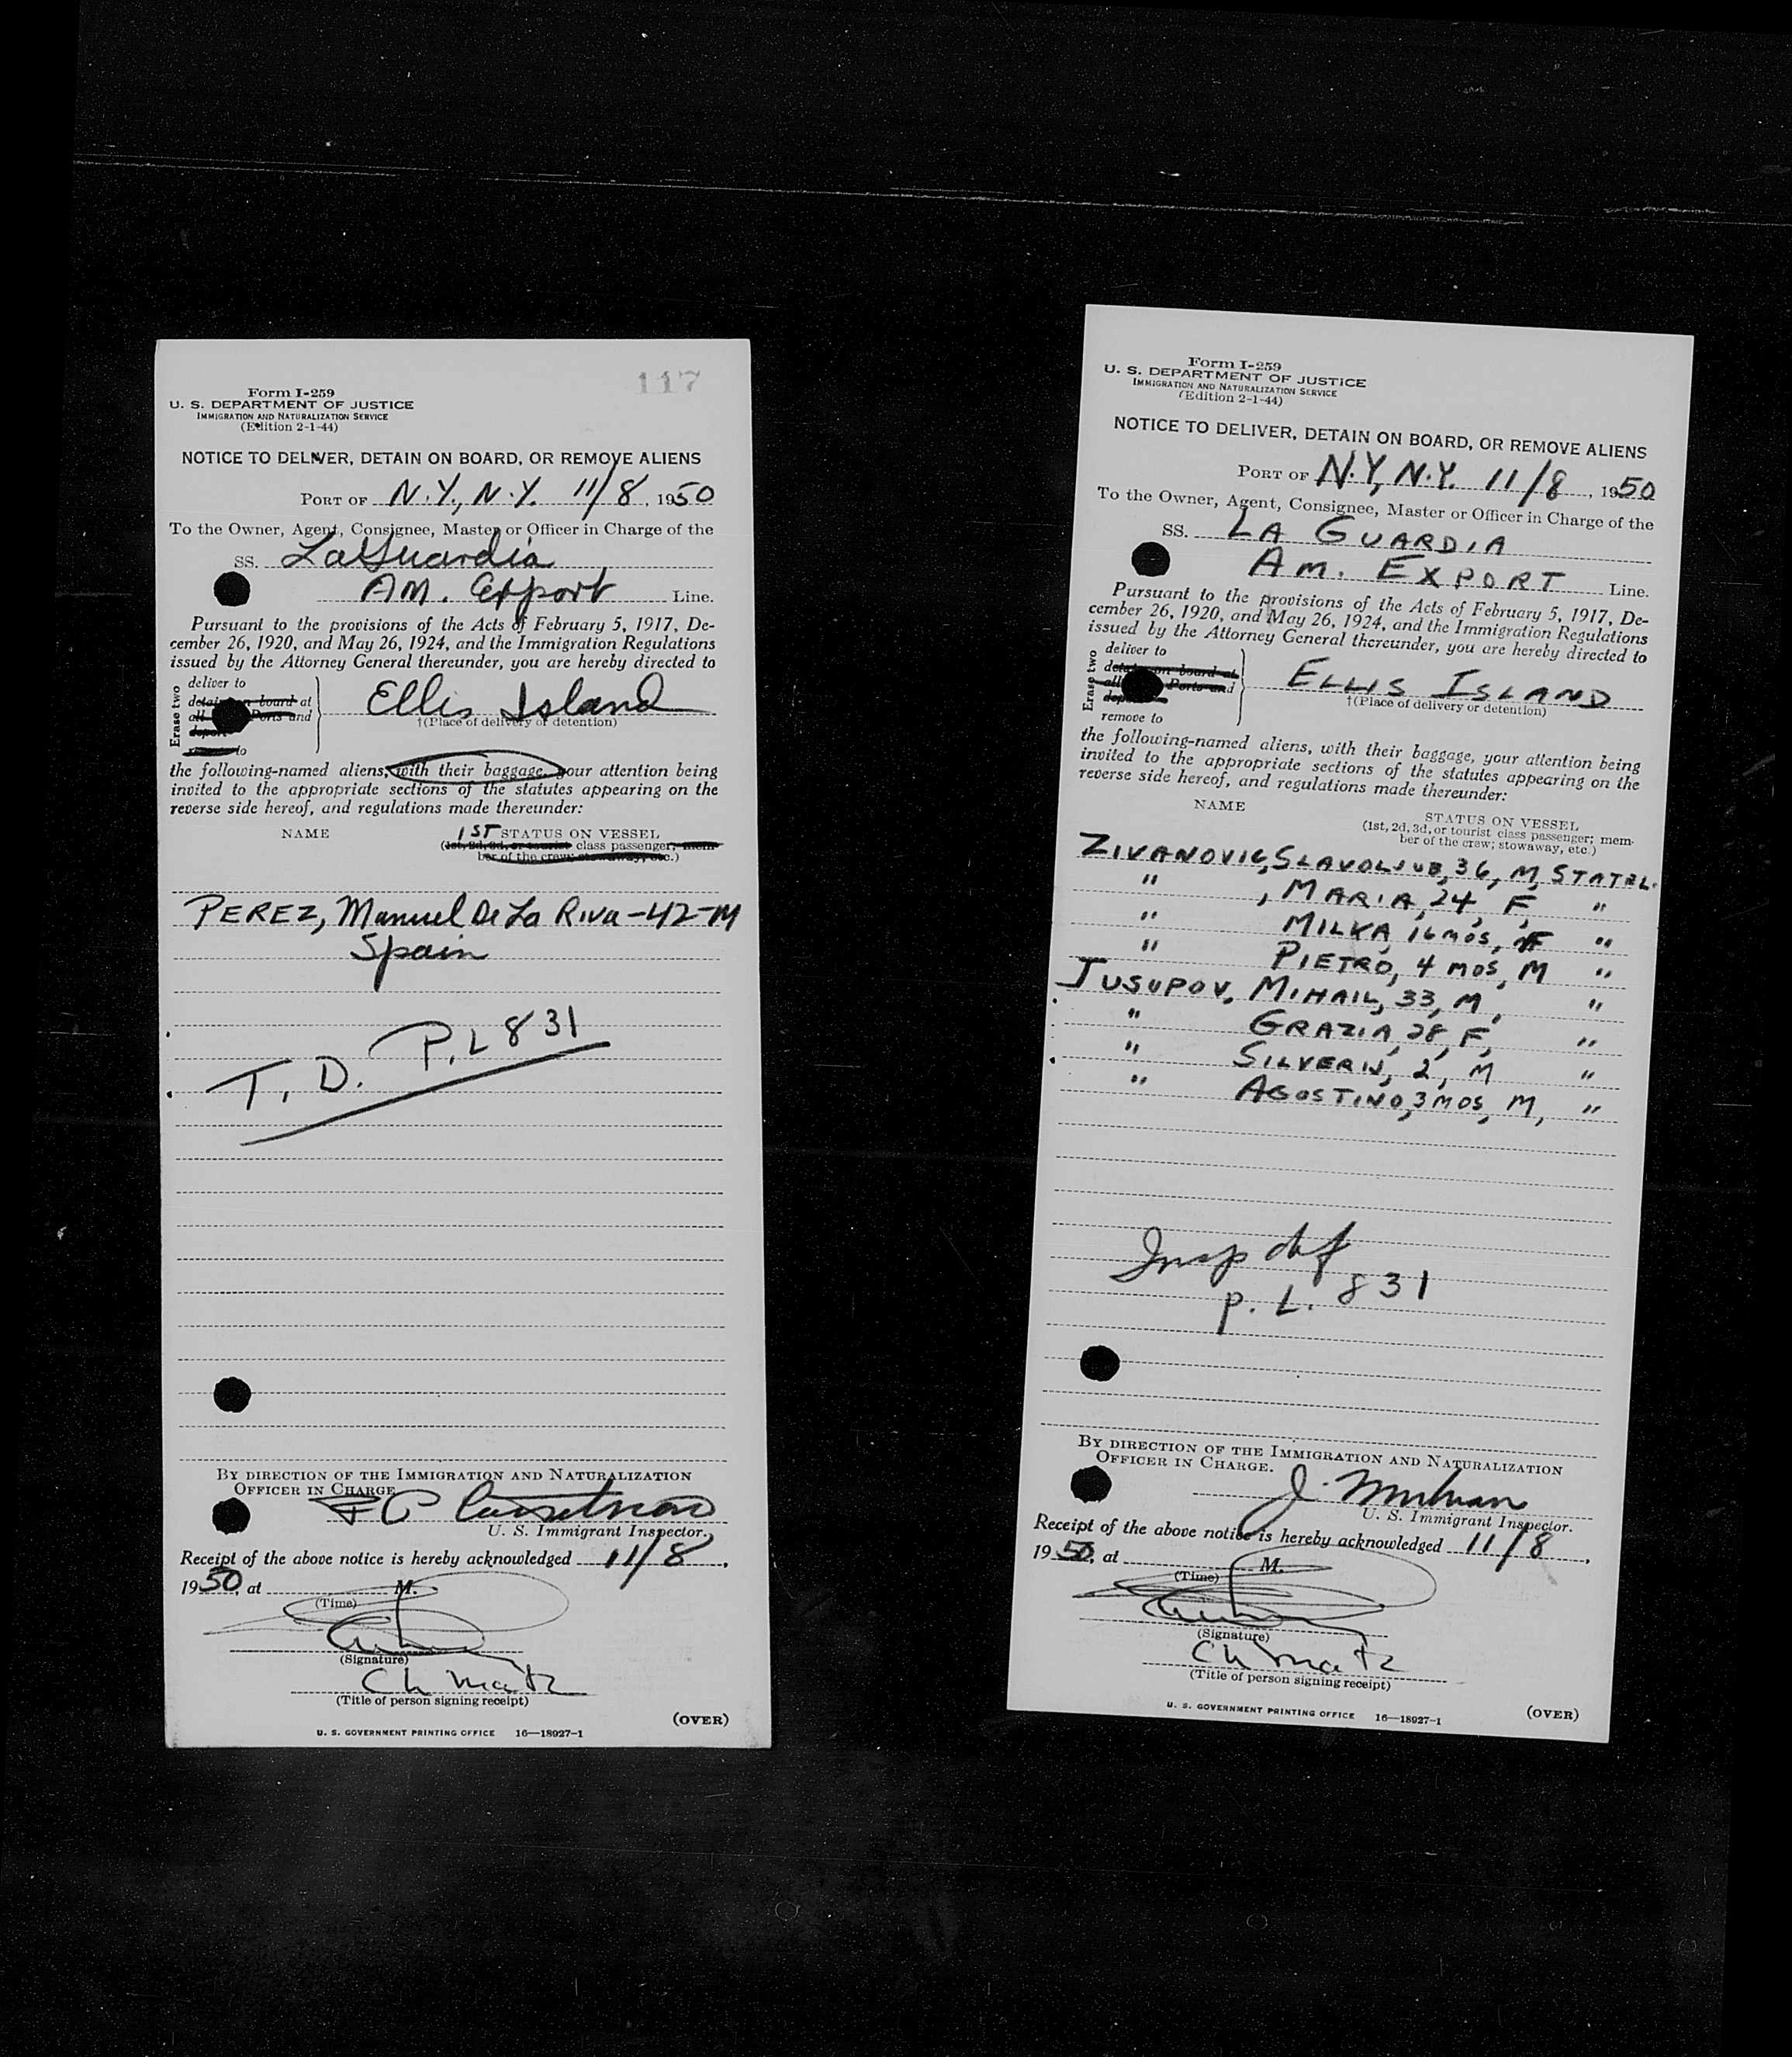 117
Form I-259
U. S. DEPARTMENT OF JUSTICE
IMMIGRATION AND NATURALIZATION SERVICE
(Edition 2-1-44)
NOTICE TO DELIVER, DETAIN ON BOARD, OR REMOVE ALIENS
PORT OF N.Y., N.Y. 11/8, 1950
To the Owner, Agent, Consignee, Master or Officer in Charge of the
SS. LaGuardia
AM. Export Line.
Pursuant to the provisions of the Acts of February 5, 1917, De-
cember 26, 1920, and May 26, 1924, and the Immigration Regulations
issued by the Attorney General thereunder, you are hereby directed to
Erase two
deliver to
detain on board at
all Ports and
to
Ellis Island
†(Place of delivery or detention)
the following-named aliens, with their baggage, your attention being
invited to the appropriate sections of the statutes appearing on the
reverse side hereof, and regulations made thereunder:
NAME 1ST STATUS ON VESSEL
(1st, 2d, 3d, or tourist class passenger; mem-
ber of the crew; stowaway, etc.)
PEREZ, Manuel De La Riva-42-M
Spain
T. D. P.L 831
BY DIRECTION OF THE IMMIGRATION AND NATURALIZATION
OFFICER IN CHARGE.
U. S. Immigrant Inspector.
Receipt of the above notice is hereby acknowledged 11/8,
1950, at M.
(Time)
(Signature)
(Title of person signing receipt)
(OVER)
U. S. GOVERNMENT PRINTING OFFICE 16—18927-1
Form I-259
U. S. DEPARTMENT OF JUSTICE
IMMIGRATION AND NATURALIZATION SERVICE
(Edition 2-1-44)
NOTICE TO DELIVER, DETAIN ON BOARD, OR REMOVE ALIENS
PORT OF N.Y, N.Y. 11/8, 1950
To the Owner, Agent, Consignee, Master or Officer in Charge of the
SS. LA GUARDIA
AM. EXPORT Line.
Pursuant to the provisions of the Acts of February 5, 1917, De-
cember 26, 1920, and May 26, 1924, and the Immigration Regulations
issued by the Attorney General thereunder, you are hereby directed to
Erase two
deliver to
detain on board at
all Ports and
remove to
ELLIS ISLAND
†(Place of delivery or detention)
the following-named aliens, with their baggage, your attention being
invited to the appropriate sections of the statutes appearing on the
reverse side hereof, and regulations made thereunder:
NAME STATUS ON VESSEL
(1st, 2d, 3d, or tourist class passenger; mem-
ber of the crew; stowaway, etc.)
ZIVANOVIC, SLAVOLJUB, 36, M, STATEL.
" , MARIA, 24, F, "
" MILKA, 16 mos, F "
" PIETRO, 4 mos, M "
JUSUPOV, MIHAIL, 33, M, "
" GRAZIA, 28, F, "
" SILVERIJ, 2, M "
" AGOSTINO, 3 MOS, M, "
Insp
P. L. 831
BY DIRECTION OF THE IMMIGRATION AND NATURALIZATION
OFFICER IN CHARGE.
U. S. Immigrant Inspector.
Receipt of the above notice is hereby acknowledged 11/8,
1950, at M.
(Time)
(Signature)
(Title of person signing receipt)
(OVER)
U. S. GOVERNMENT PRINTING OFFICE 16—18927-1